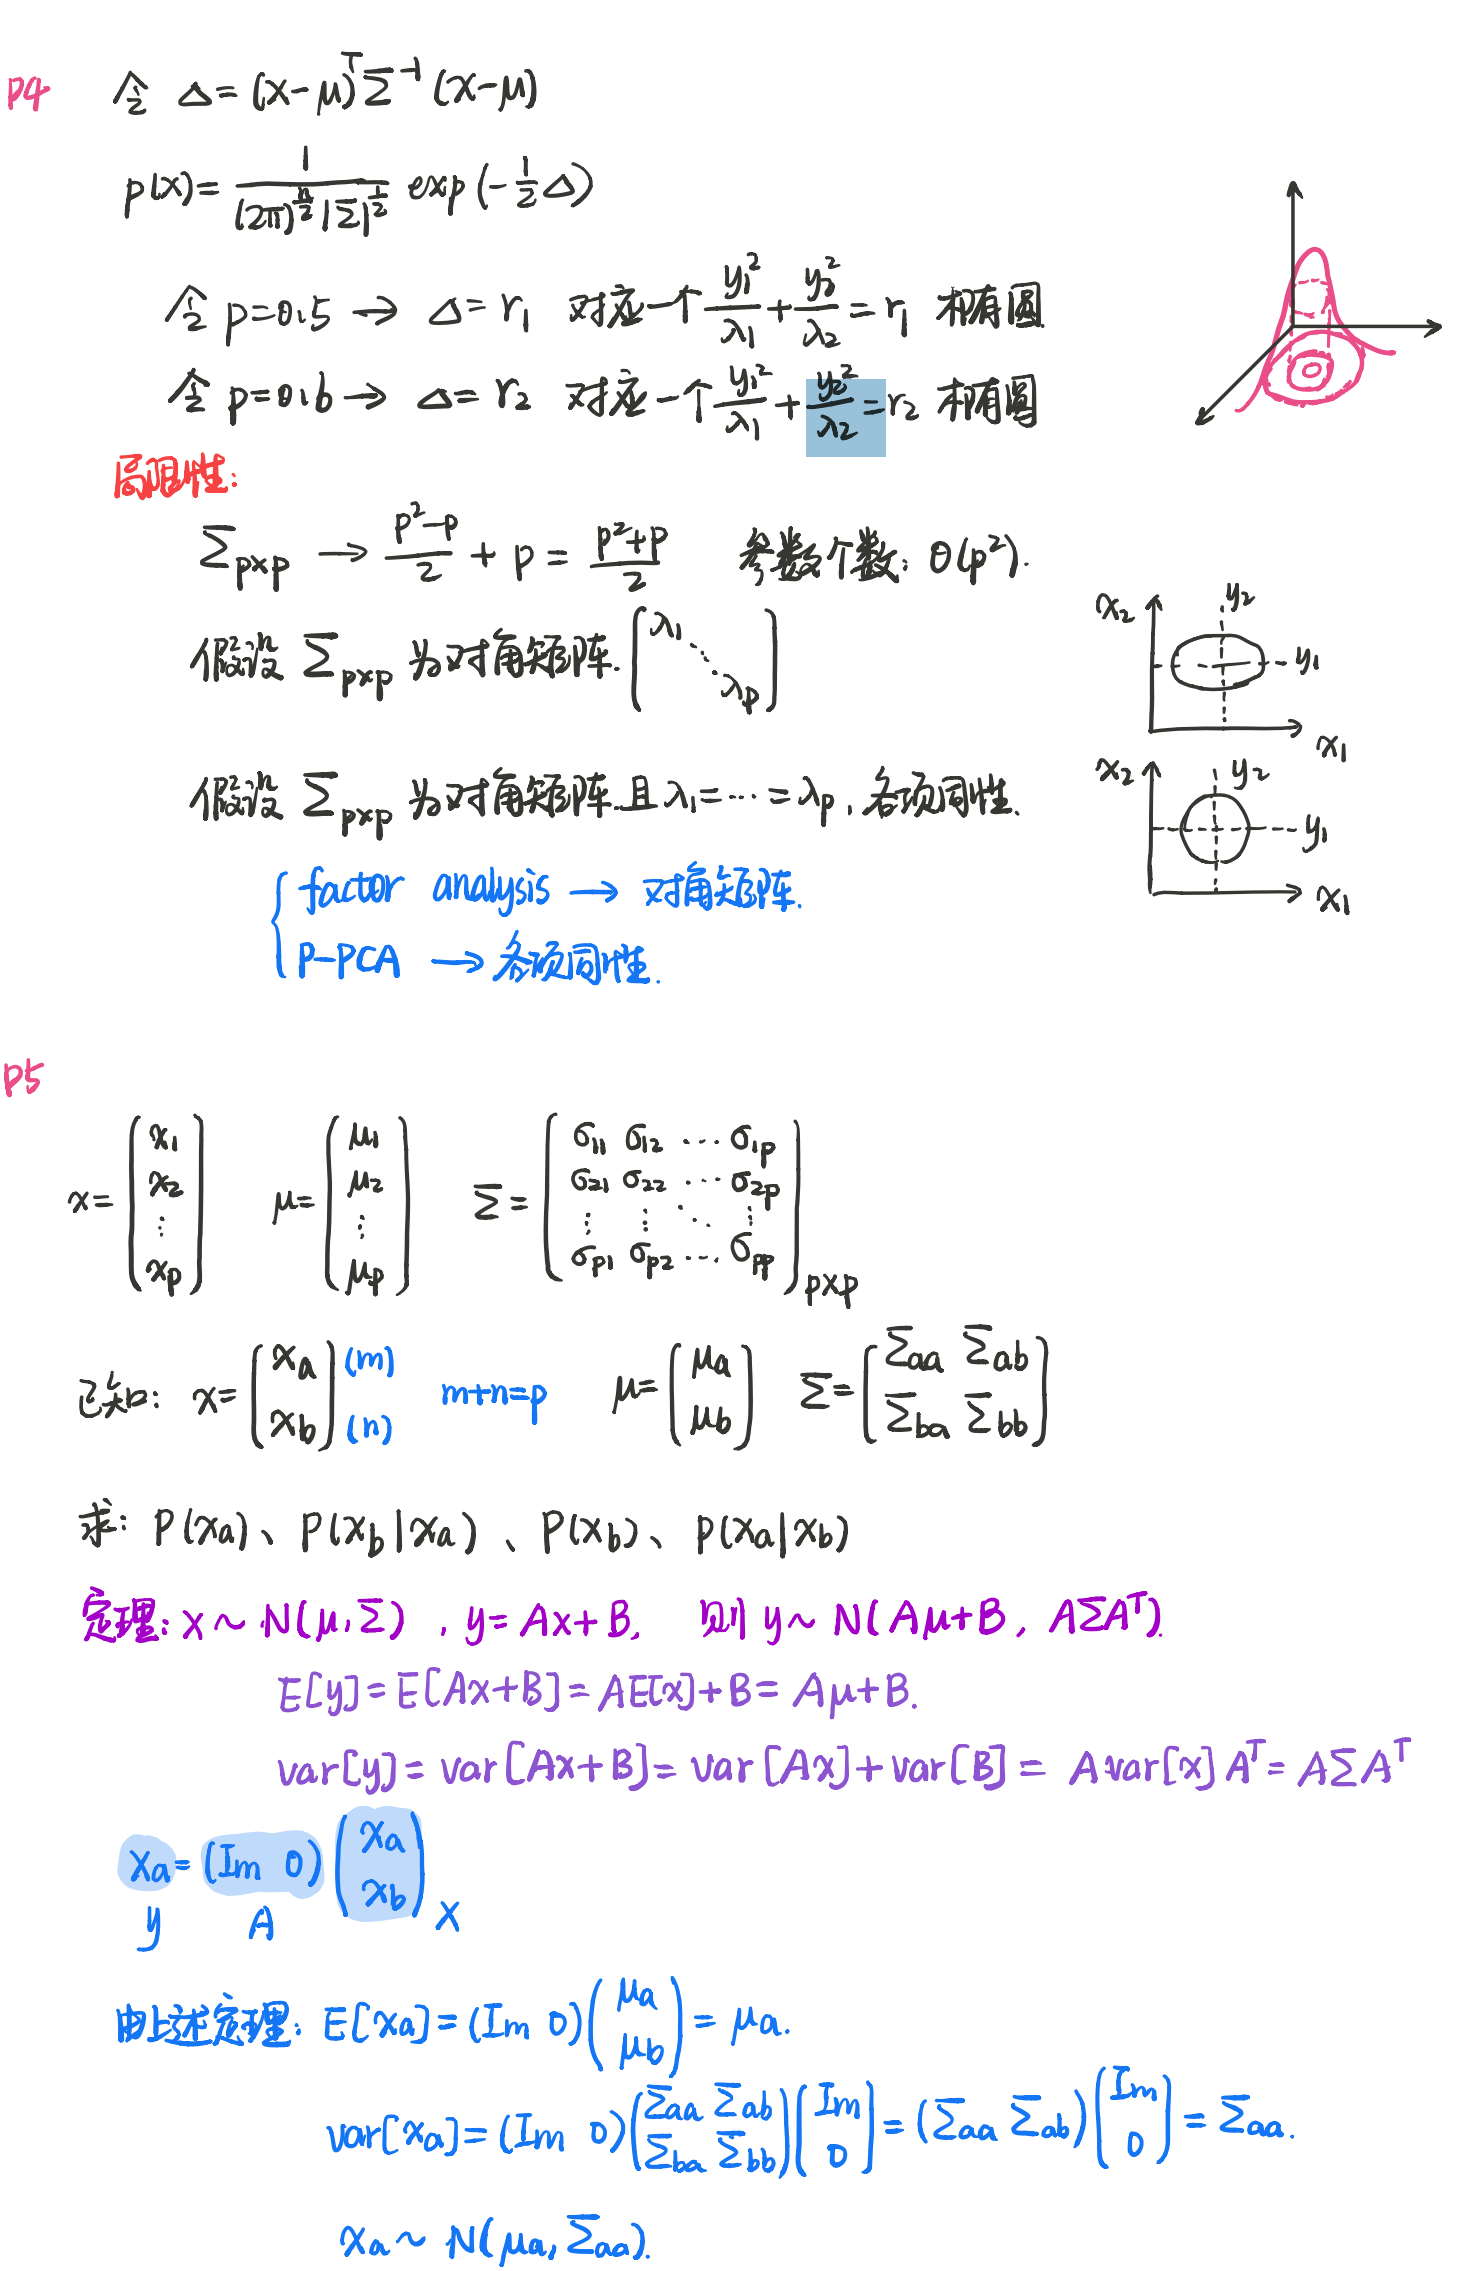 P4 令 Δ=(x-μ)ᵀΣ⁻¹(x-μ)
p(x)= 1/((2π)^{n/2}|Σ|^{1/2}) exp(-1/2 Δ)
令 p=0.5 → Δ=r₁ 对应一个 y₁²/λ₁ + y₂²/λ₂ = r₁ 椭圆
令 p=0.6 → Δ=r₂ 对应一个 y₁²/λ₁ + y₂²/λ₂ = r₂ 椭圆
局限性:
Σ_{p×p} → (p²-p)/2 + p = (p²+p)/2 参数个数: O(p²).
假设 Σ_{p×p} 为对角矩阵. [λ₁ ⋱ λp]
x₂ y₂ y₁ x₁
假设 Σ_{p×p} 为对角矩阵且 λ₁=⋯=λp, 各项同性.
x₂ y₂ y₁ x₁
{ factor analysis → 对角矩阵.
P-PCA → 各项同性.
P5
x= (x₁ x₂ ⋮ xp) μ= (μ₁ μ₂ ⋮ μp) Σ= (σ₁₁ σ₁₂ ⋯ σ₁p
σ₂₁ σ₂₂ ⋯ σ₂p
⋮ ⋮ ⋱ ⋮
σp₁ σp₂ ⋯ σpp)_{p×p}
已知: x= (x_a x_b) (m) (n) m+n=p μ= (μ_a μ_b) Σ= (Σ_aa Σ_ab
Σ_ba Σ_bb)
求: P(x_a)、P(x_b|x_a)、P(x_b)、P(x_a|x_b)
定理: x ~ N(μ,Σ), y=Ax+B, 则 y ~ N(Aμ+B, AΣAᵀ).
E[y]=E[Ax+B]=AE[x]+B=Aμ+B.
var[y]=var[Ax+B]=var[Ax]+var[B]=Avar[x]Aᵀ=AΣAᵀ
x_a=(Im 0)(x_a x_b)
y A x
由上述定理: E[x_a]=(Im 0)(μ_a μ_b)=μ_a.
var[x_a]=(Im 0)(Σ_aa Σ_ab Σ_ba Σ_bb)(Im 0)=(Σ_aa Σ_ab)(Im 0)=Σ_aa.
x_a ~ N(μ_a,Σ_aa).